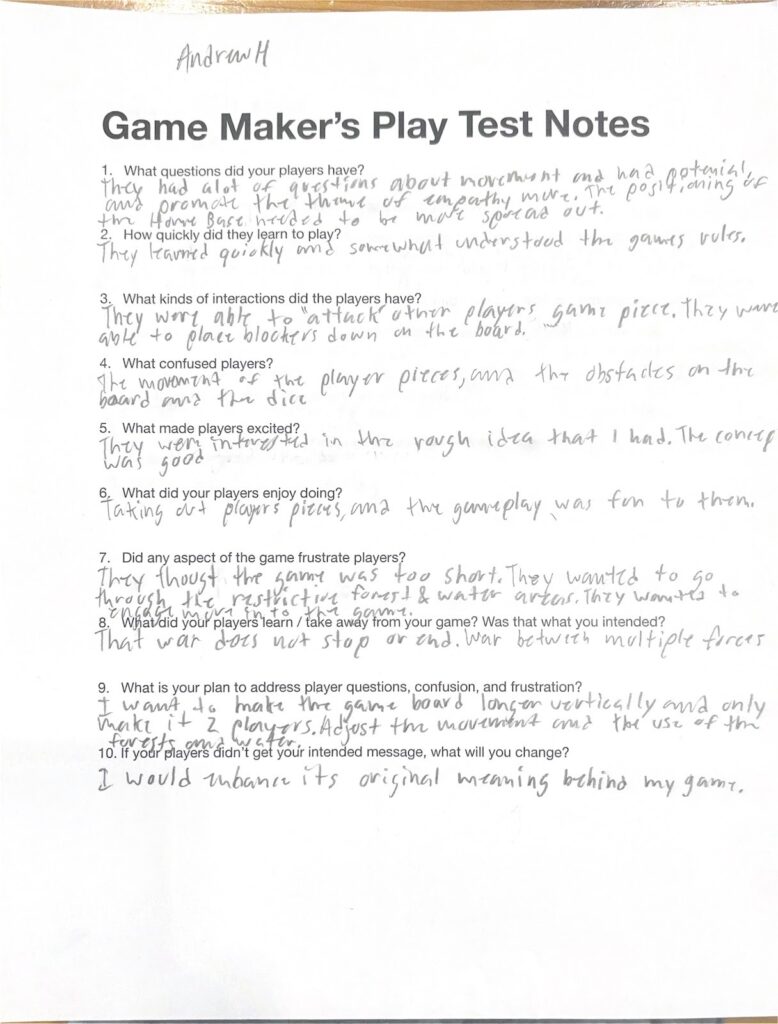 Andrew H
Game Maker's Play Test Notes
1. What questions did your players have?
They had alot of questions about movement and had potenial,
and promote the theme of empathy more. The positioning of
the Home Base needed to be more spread out.
2. How quickly did they learn to play?
They learned quickly and somewhat understood the games rules.
3. What kinds of interactions did the players have?
They were able to "attack" other players game piece. They were
able to place blockers down on the board.
4. What confused players?
The movement of the player pieces, and the obstacles on the
board and the dice
5. What made players excited?
They were interested in the rough idea that I had. The concep
was good
6. What did your players enjoy doing?
Taking out players pieces, and the gameplay was fun to them.
7. Did any aspect of the game frustrate players?
They thougt the game was too short. They wanted to go
through the restrictive forest & water areas. They wanted to
engage more into the game.
8. What did your players learn / take away from your game? Was that what you intended?
That war does not stop or end. War between multiple forces
9. What is your plan to address player questions, confusion, and frustration?
I want to make the game board longer vertically and only
make it 2 players. Adjust the movement and the use of the
forests and water.
10. If your players didn't get your intended message, what will you change?
I would enhance its original meaning behind my game.